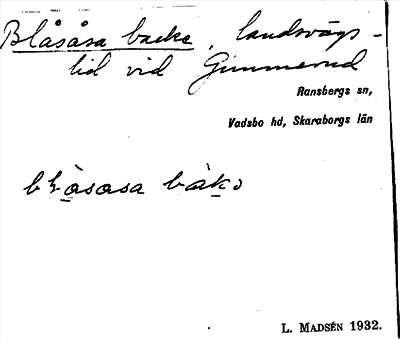 Blåsåsa backe, landsvägs-
lid vid Gimmerud
Ransbergs sn,
Vadsbo hd, Skaraborgs län
L. MADSÉN 1932.